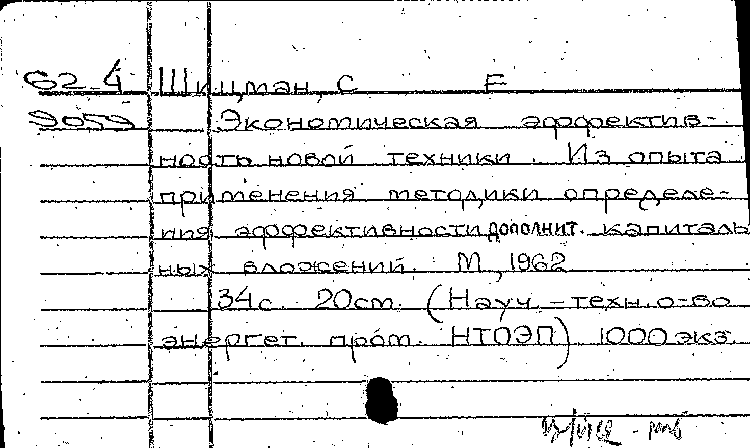 62-4 Шицман, С Е
9059 Экономическая эффектив-
ность новой техники. Из опыта
применения методики определе-
ния эффективности дополнит. капиталь
ных вложений. М, 1962
34с. 20см. (Науч.-техн. о-во
энергет. пром. НТОЭП) 1000 экз.